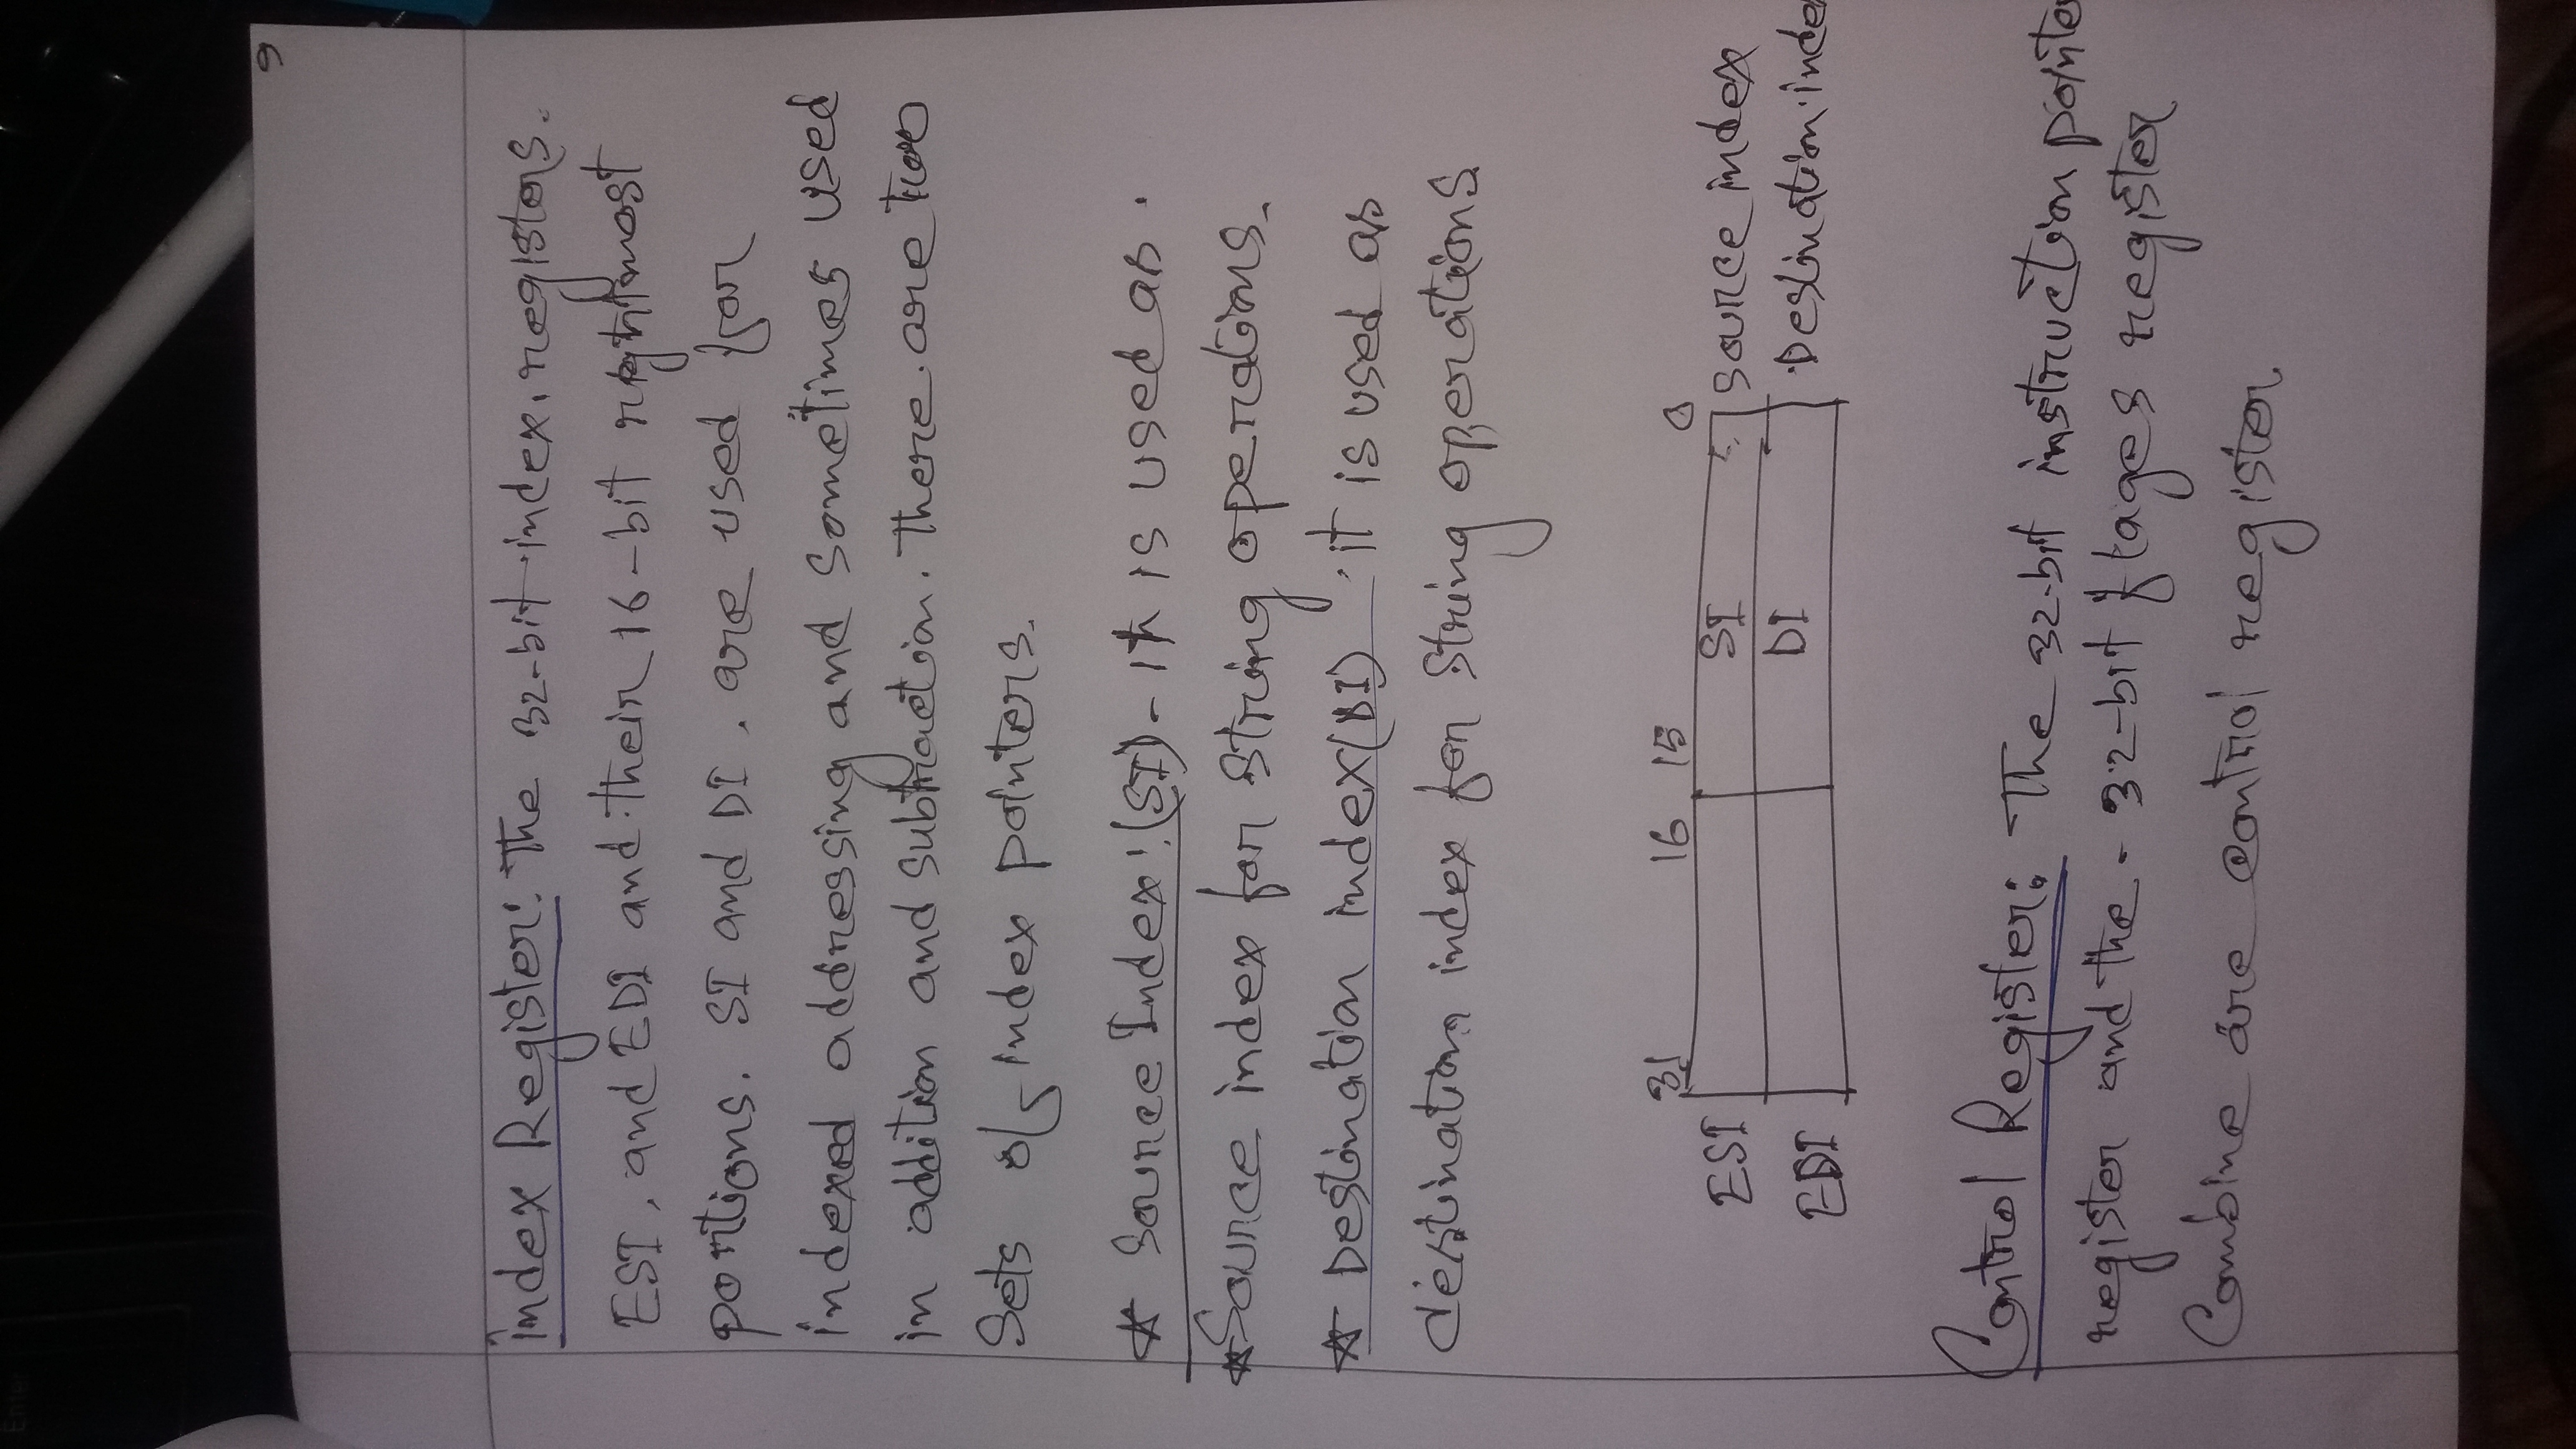 9
Index Register: The 32-bit index registers.
ESI, and EDI and their 16-bit rightmost
portions. SI and DI, are used for
indexed addressing and sometimes used
in addition and subtraction. There are two
Sets of index pointers.
* Source Index: (SI) - It is used as
* Source index for string operations.
* Destination index (DI) it is used as
destination index for String operations
31 16 15 0
ESI SI Source index
EDI DI Destination inde
Control Register: The 32-bit instruction pointe
register and the - 32-bit flages register
Combine are control register.